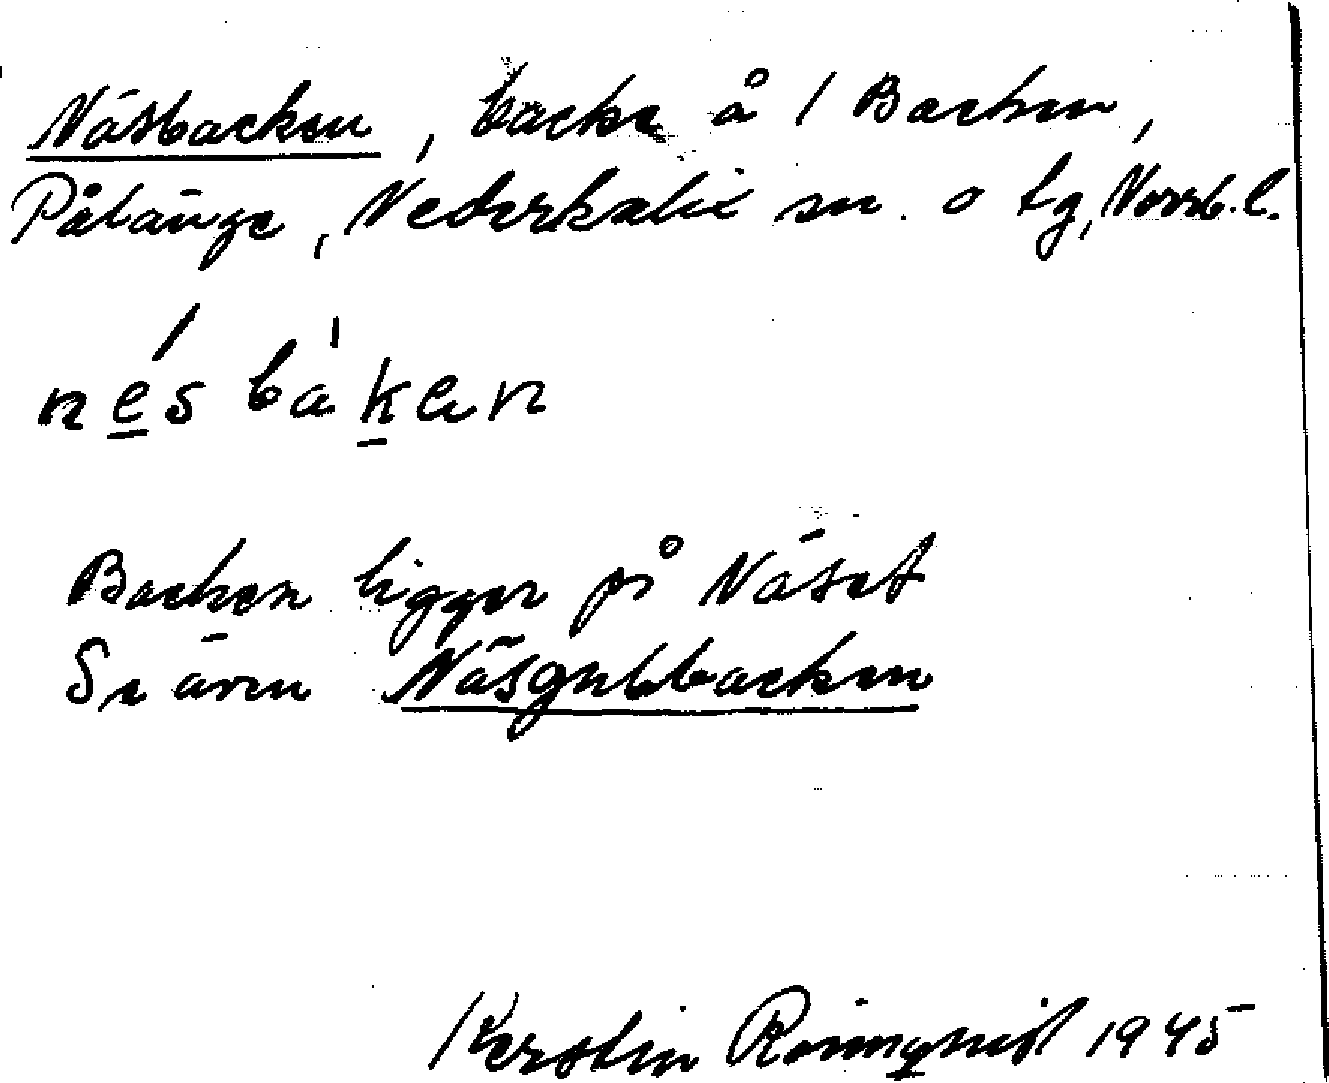 Näsbacken, backe å 1 Backen,
Pålänge, Nederkalix sn. o tg, Norrb. l.
nésbákan
Backen ligger på Näset
Se även Näsgubbbacken
Kerstin Rönnqvist 1945